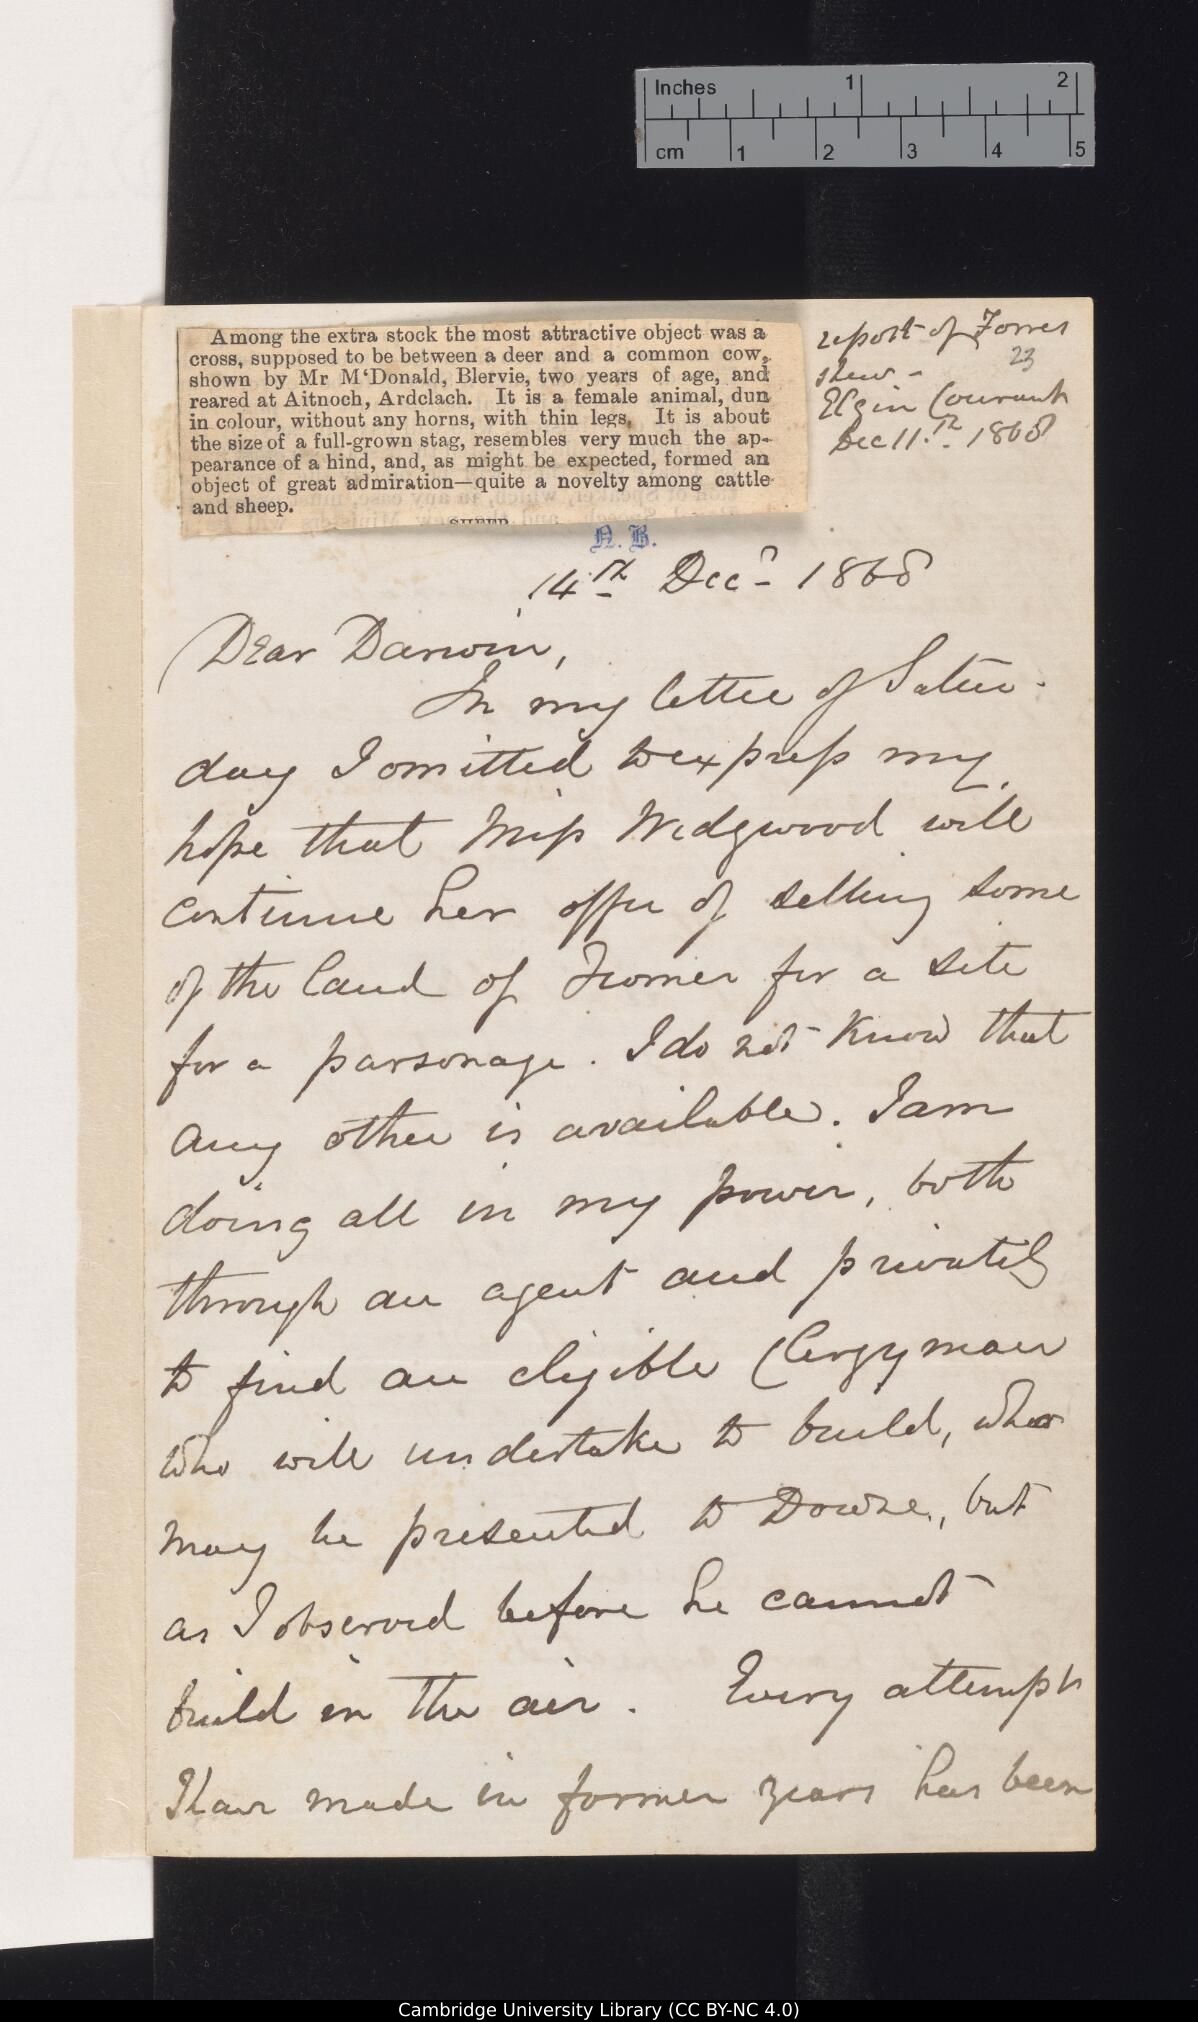 Inches 1 2
cm 1 2 3 4 5
Among the extra stock the most attractive object was a
cross, supposed to be between a deer and a common cow,
shown by Mr M‘Donald, Blervie, two years of age, and
reared at Aitnoch, Ardclach. It is a female animal, dun
in colour, without any horns, with thin legs. It is about
the size of a full-grown stag, resembles very much the ap-
pearance of a hind, and, as might be expected, formed an
object of great admiration—quite a novelty among cattle
and sheep.
SHEEP
report of Forres
23
shew -
Elgin Courant
Dec 11th. 1868
N. B.
14th Decr 1868
Dear Darwin,
In my letter of Satur-
day I omitted to express my
hope that Miss Wedgwood will
continue her offer of selling some
of the land of Tromer for a site
for a parsonage. I do not know that
any other is available. I am
doing all in my power, both
through an agent and privately
to find an eligible Clergyman
who will undertake to build, who
may be presented to Downe, but
as I observed before he cannot
build in the air. Every attempt
I have made in former years has been
Cambridge University Library (CC BY-NC 4.0)